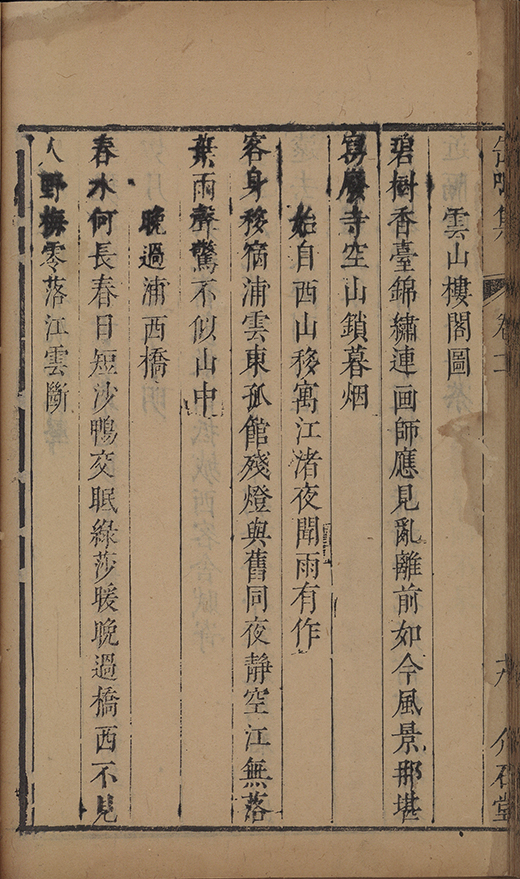 雲山樓閣圖
碧樹香臺錦繡連画師應見亂離前如今風景那堪
寫廢寺空山鎖暮烟
始自西山移寓江渚夜聞雨有作
客身移宿浦雲東孤館殘燈與舊同夜靜空江無落
葉雨聲驚不似山中
晚過浦西橋
春水何長春日短沙鴨交眠綠莎暖晚過橋西不見
人野梅零落江雲斷
集
卷二
介石堂